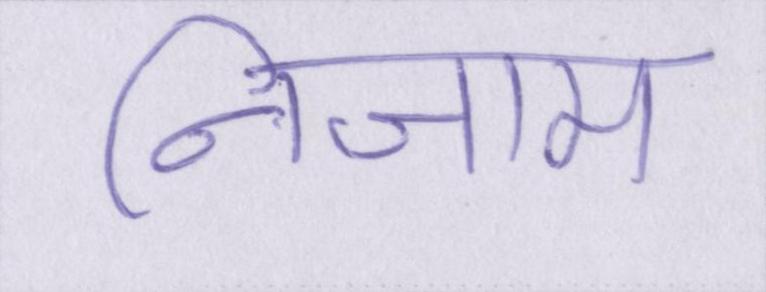 निजाम